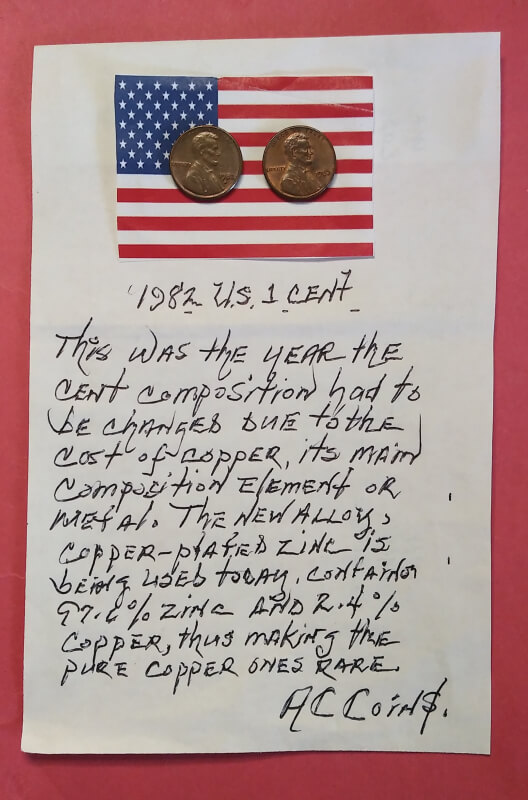 LIBERTY
1982
LIBERTY
1982
1982 U.S. 1 CENT
This was the year the
cent composition had to
be changed due to the
cost of copper, its main
composition element or
metal. The new alloy,
copper-plated zinc is
being used today, contains
97.6% zinc and 2.4%
copper, thus making the
pure copper ones rare.
AC Coin$.